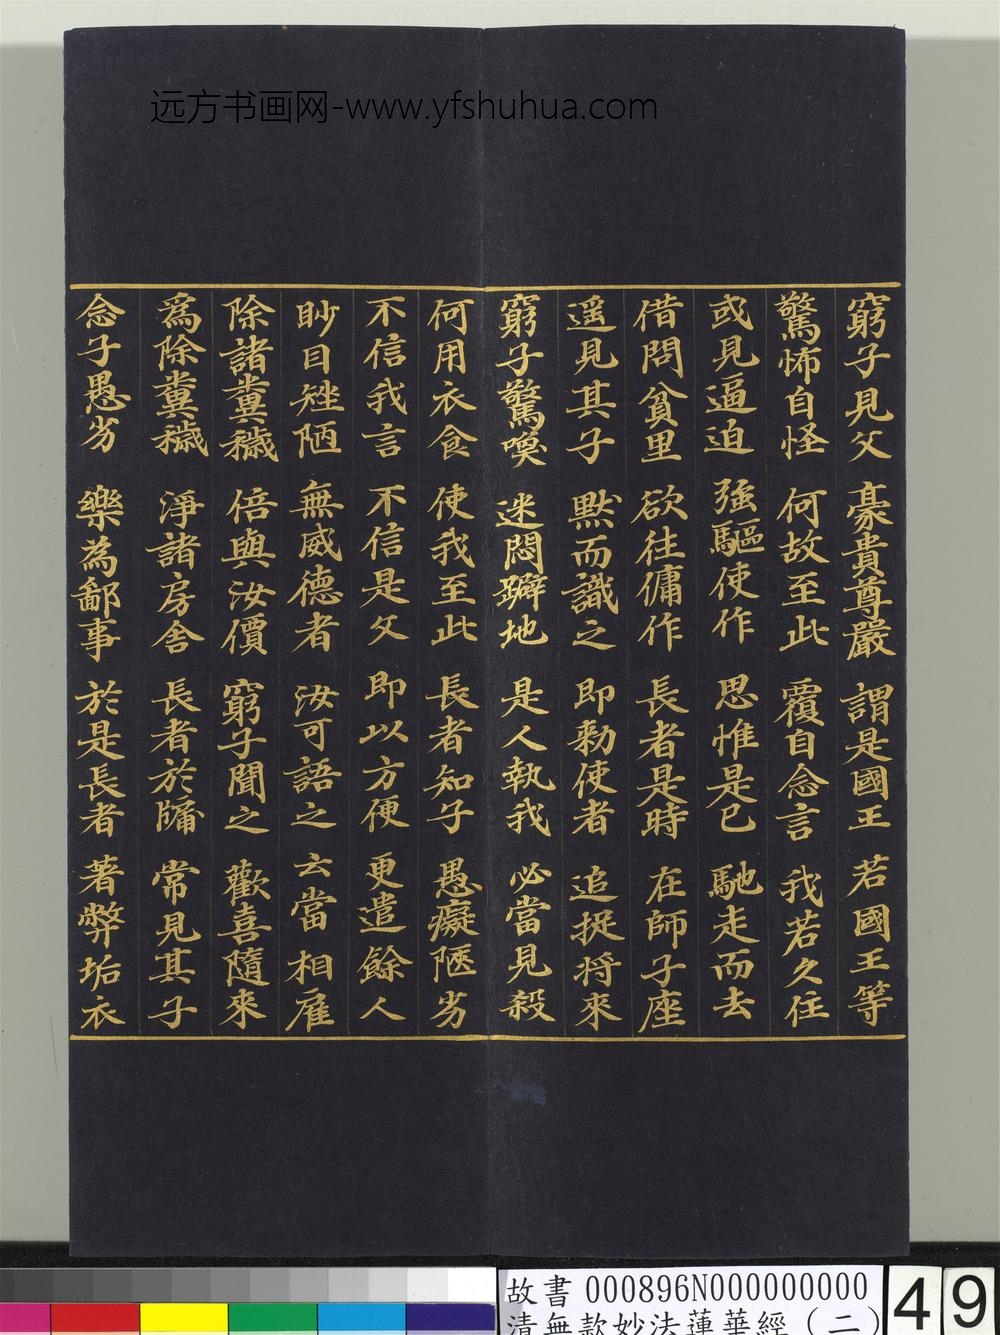 远方书画网-www.yfshuhua.com
窮子見父 豪貴尊嚴 謂是國王 若國王等
驚怖自怪 何故至此 覆自念言 我若久住
或見逼迫 強驅使作 思惟是已 馳走而去
借問貧里 欲往傭作 長者是時 在師子座
遥見其子 默而識之 即勑使者 追捉将來
窮子驚喚 迷悶躃地 是人執我 必當見殺
何用衣食 使我至此 長者知子 愚癡陿劣
不信我言 不信是父 即以方便 更遣餘人
眇目矬陋 無威德者 汝可語之 云當相雇
除諸糞穢 倍與汝價 窮子聞之 歡喜隨來
爲除糞穢 淨諸房舍 長者於牖 常見其子
念子愚劣 樂為鄙事 於是長者 著弊垢衣
故書 000896N000000000
清無款妙法蓮華經（二）
49